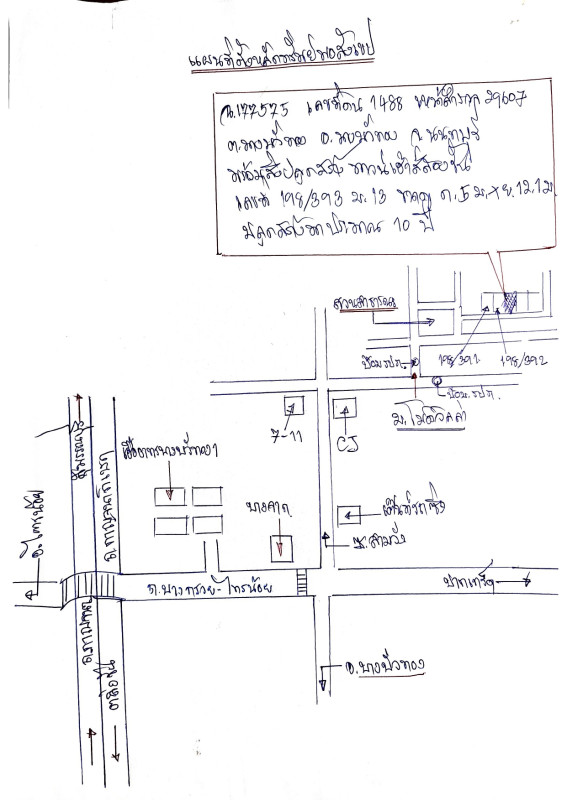 แผนที่ตั้งหลักทรัพย์พอสังเขป
ฉ.177575 เลขที่ดิน 1488 หน้าสำรวจ 29607
ต.บางบัวทอง อ.บางบัวทอง จ.นนทบุรี
พร้อมสิ่งปลูกสร้าง ทาวน์เฮ้าส์สองชั้น
เลขที่ 198/393 ม.13 ขนาด ก.5 ม. x ย.12.1 ม.
ปลูกสร้างมาประมาณ 10 ปี
สวนสาธารณะ
ป้อม รปภ.
198/391
198/392
ป้อม รปภ.
7-11
CJ
สุพรรณบุรี
ถ.กาญจนาภิเษก
เอื้ออาทรบางบัวทอง 1
อ.ไทรน้อย
ถ.บางกรวย-ไทรน้อย
ซ.สามวัง
ปากเกร็ด
ตลิ่งชัน
อ.บางบัวทอง